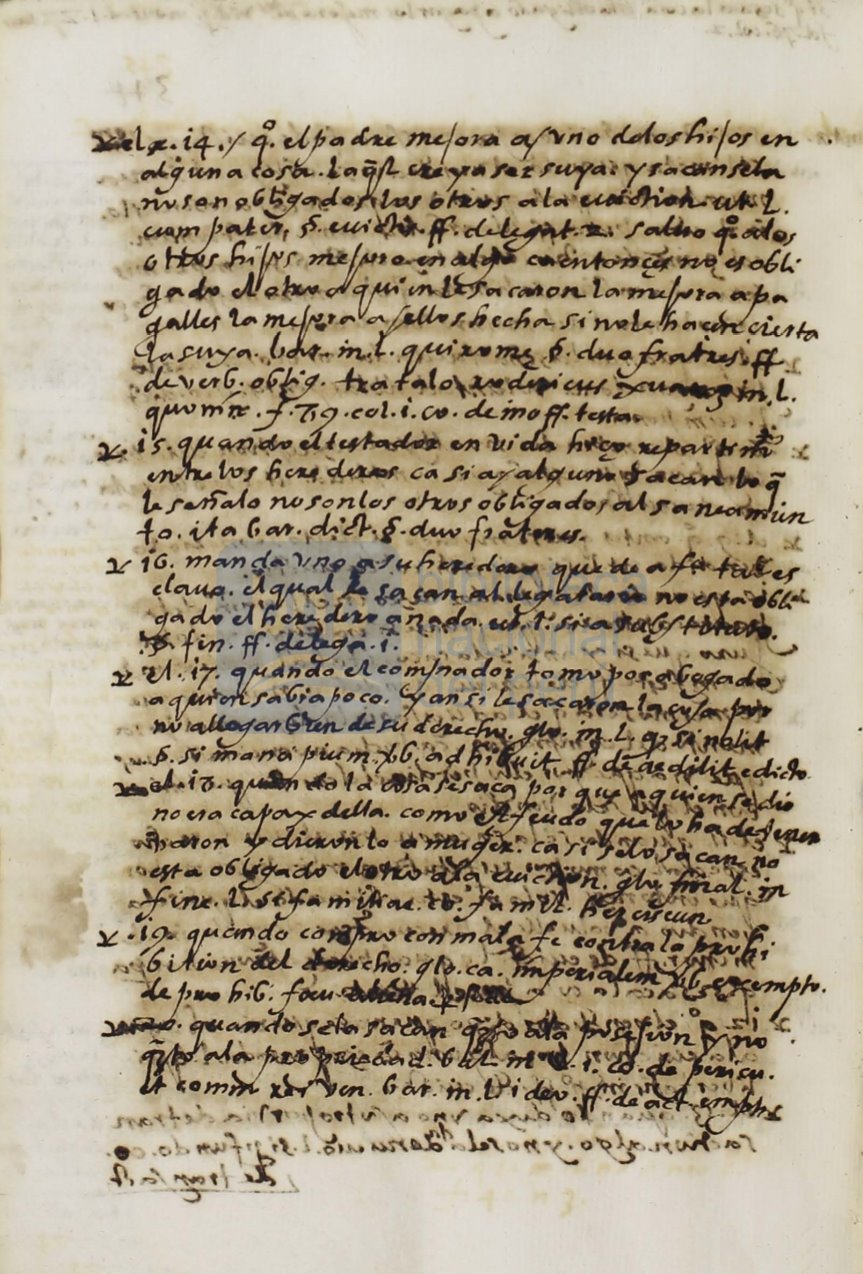 el. 14. y qº. el padre mejora a uno delos hijos en
alguna cosa. la q̄l creya ser suya. y sacansela
no son obligados los otros ala euiction. ut. l.
cum pater, §. euictis. ff. de legat. 2. saluo qº. alos
otros hijos mejoro en algo ca entonces no es obli
gado el otro a quien le sacaron la mejora a pa
galles la mejora a ellos hecha si no le hacen cierta
la suya. bar. in. l. qui rome §. duo fratres. ff
de verb. oblig. tratalo rodericus in. l.
quoniā. f. 79. col. i. co. de inoff. testa.
15. quando el testador en vida hizo repartimiº
entre los herederos ca si a alguno sacan lo q̄
le señalo no son los otros obligados al saneamien
to. ita bar. dict. §. duo fratres.
16. manda uno a su heredero que de a fº tal es
clauo. el qual le sacan al legatario no esta obli
gado el heredero a nada. ut. l. si a substituto.
§. fin. ff. de lega. i.
el. 17. quando el comprador tomo por abogado
a quien sabia poco. y ansi le sacaron la cosa por
no allegar bien de su derecho. glo. in. l. q. si nolit
§. si mancipium. vb. adhibuit. ff. de aedilit. edicto
el. 18. quando la cosa se saca por que a quien se dio
no era capax della. como el feudo que lo ha de tener
baron y dieronlo a muger. ca si se lo sacan no
esta obligado el otro ala euiction. glo. final. in
fine. l. si familiae. co. famil. herciscun.
19. quando compro con mala fe contra la prohi
bition del derecho. glo. ca. imperialem vb. exempto.
de prohib. feu.
quando se la sacan q̄to ala posesion y no
q̄to ala propriedad. bal. in. l. i. co. de pericu.
et comm. rei ven. bar. in. l. i. de. ff. de act. empti